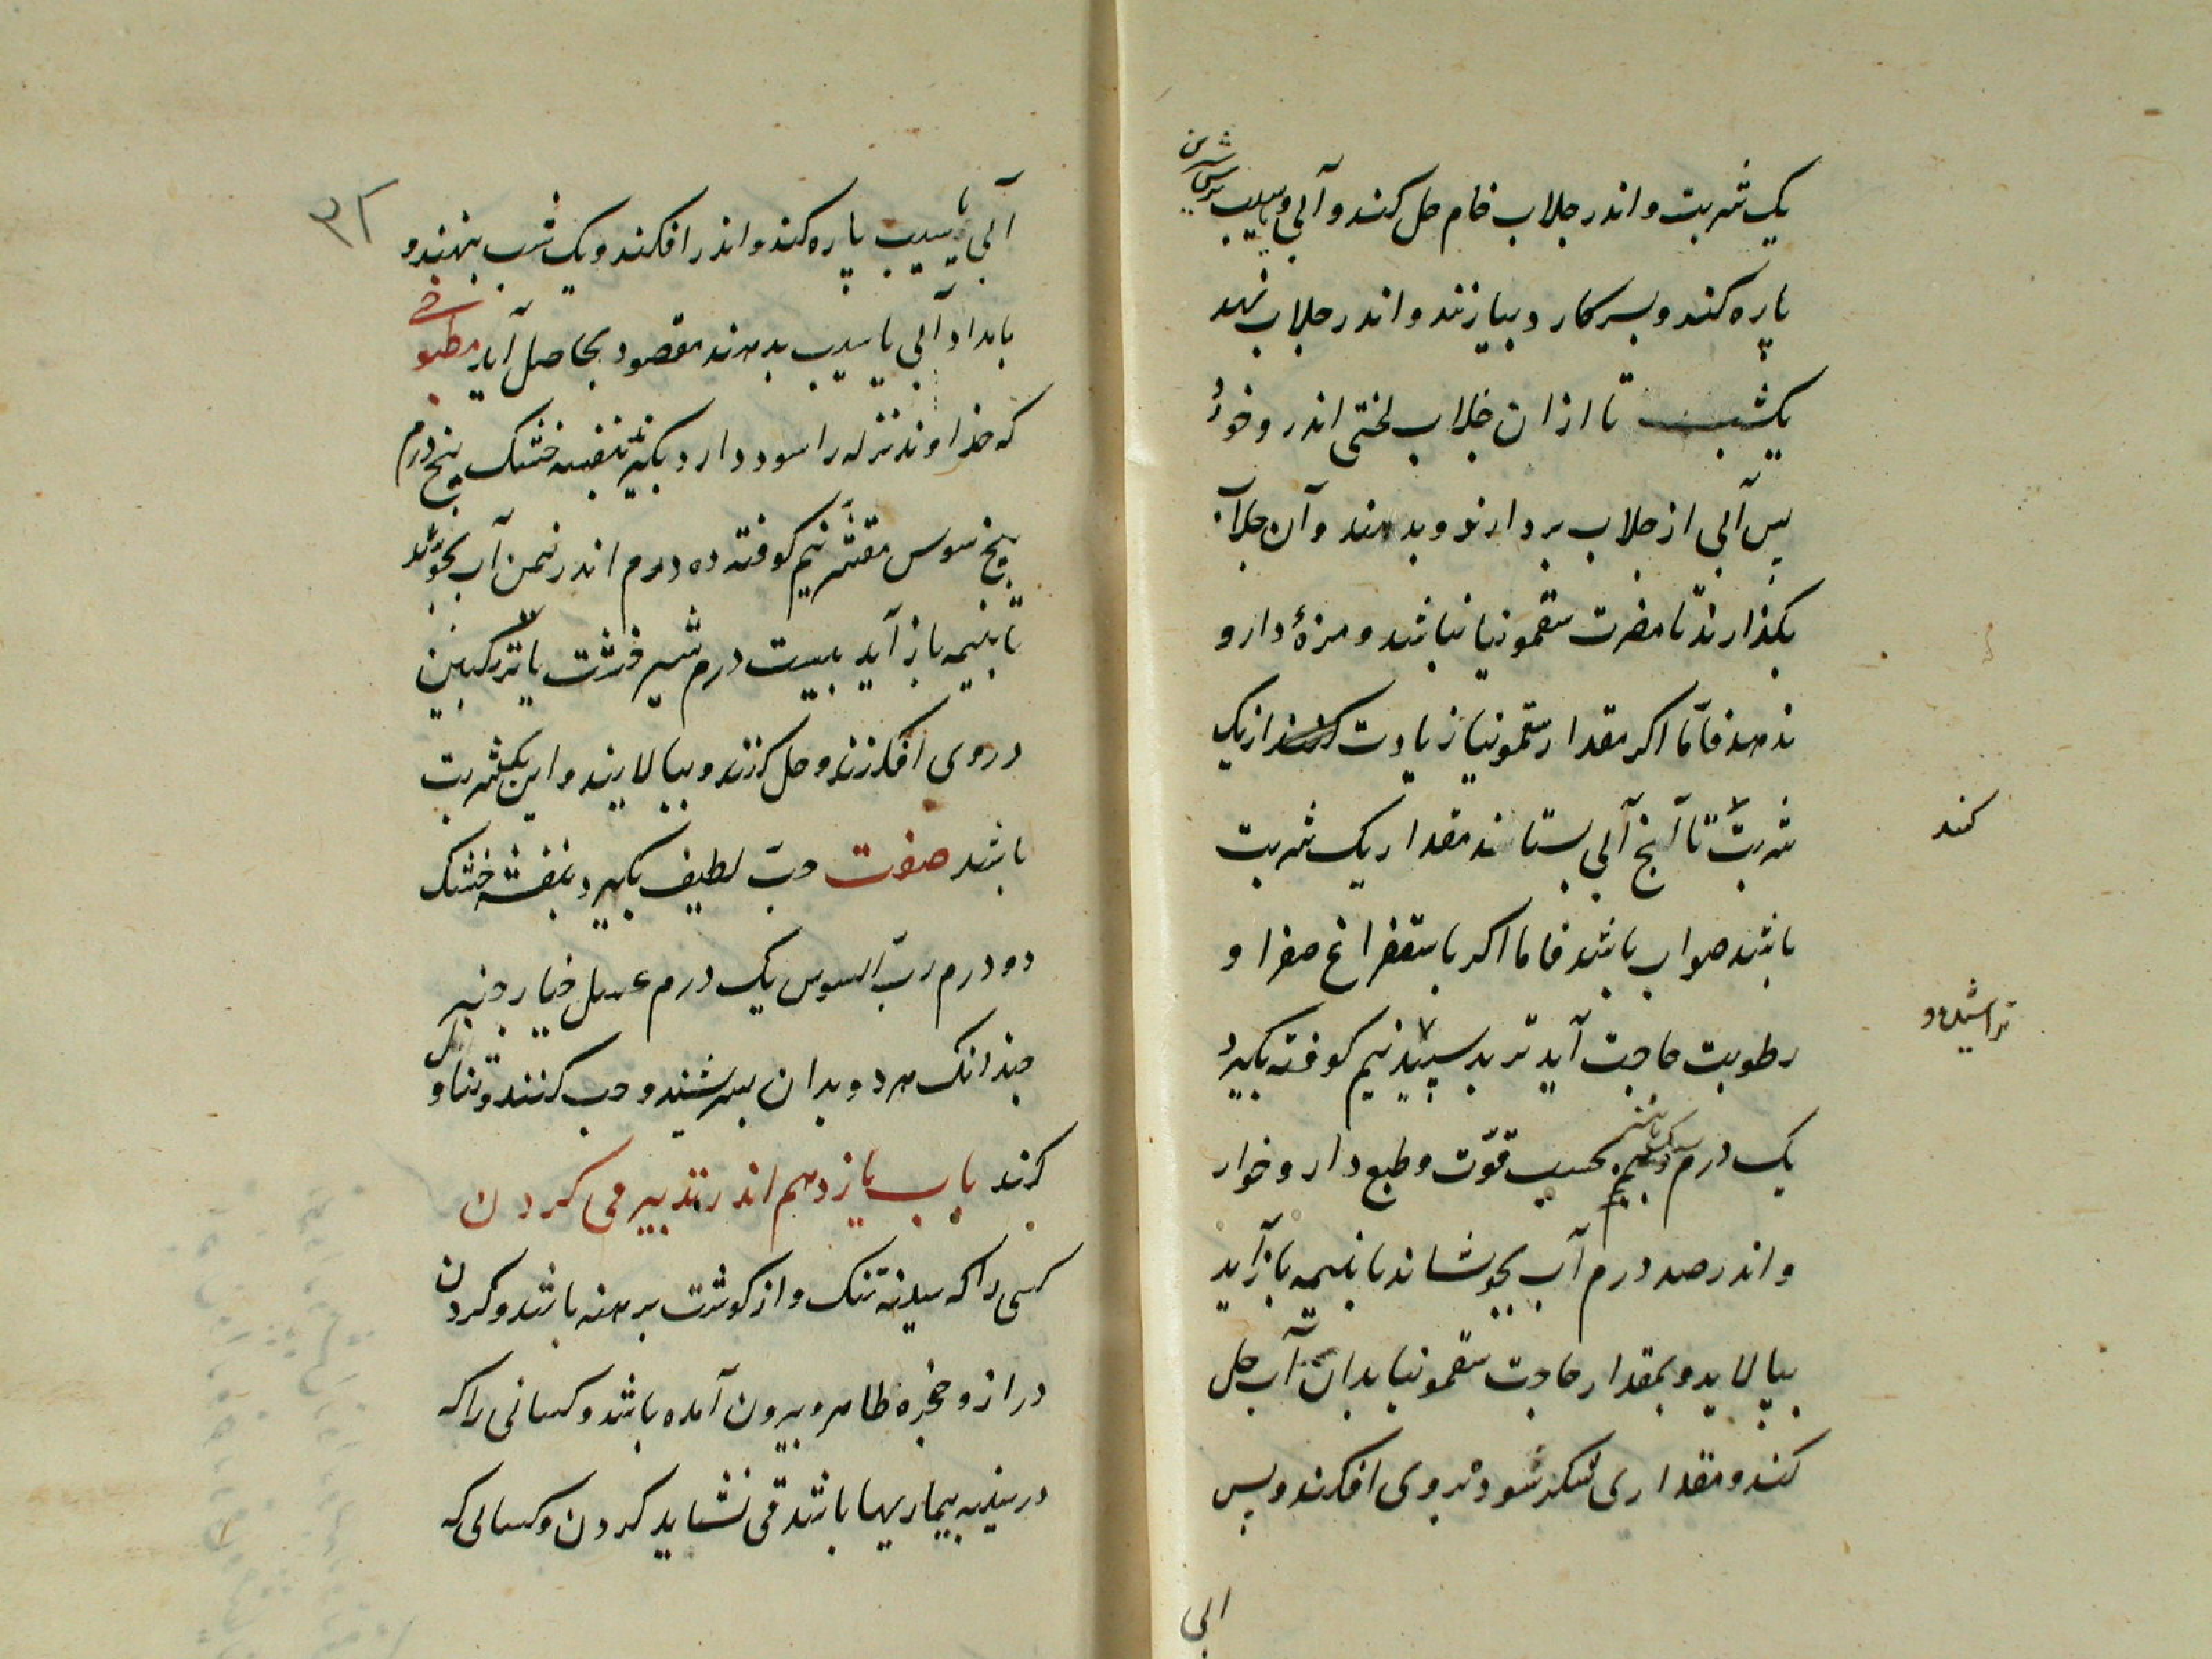 یک شربت و اندر جلاب خام حل کنند و آبی و یا سیب ترش شیرین
پاره کنند و بسر کارد بیازنند و اندر جلاب نهند
یکشب تا ازان جلاب لختی اندر و خورد
پس آبی از جلاب بردارند و بدهند و آن جلاب
بگذارند تا مضرت سقمونیا نباشد و مزهٔ دارو
ندهد فاما اکر مقدار سقمونیا زیادت از یک
کنند
شربت تا آنج آبی بستاند مقدار یک شربت
باشد صواب باشد فاما اکر باستفراغ صفرا و
رطوبت حاجت آید تربد سپید نیم کوفته بکیرد
تراشیده و
یک درم بحسب قوّت و طبع دارو خوار
و اندر صد درم آب بجوشاند تا بنیمه باز آید
بپالاید و بمقدار حاجت سقمونیا بدان آب حل
کند و مقداری شکر سوده بروی افکند و پس
ابی
۳۲
آبی یا سیب پاره کند و اندر افکند و یک شب بنهند و
بامداد آبی یا سیب بدهند مقصود بحاصل آید مطبوخی
که خداوند نزله را سود دارد بکیرند بنفشه خشک پنج درم
بیخ سوس مقشّر نیم کوفته ده درم اندر نیمن آب بجوشند
تا بنیمه باز آید بیست درم شیر خشت یا ترنکبین
در وی افکنند و حل کنند و بپالایند و این یکشربت
باشد صفت حبّ لطیف بکیرد بنفشه خشک
دو درم ربّ السوس یک درم عسل خیار چنبر
چندانک هر دو بدان بسرشند و حب کنند و تناول
کنند باب یازدهم اندر تدبیر قی کردن
کسی را که سینه تنک و از کوشت برهنه باشد و کردن
دراز و حنجره ظاهر و بیرون آمده باشد و کسانی را که
در سینه بیماریها باشد قی نشاید کردن و کسانی که